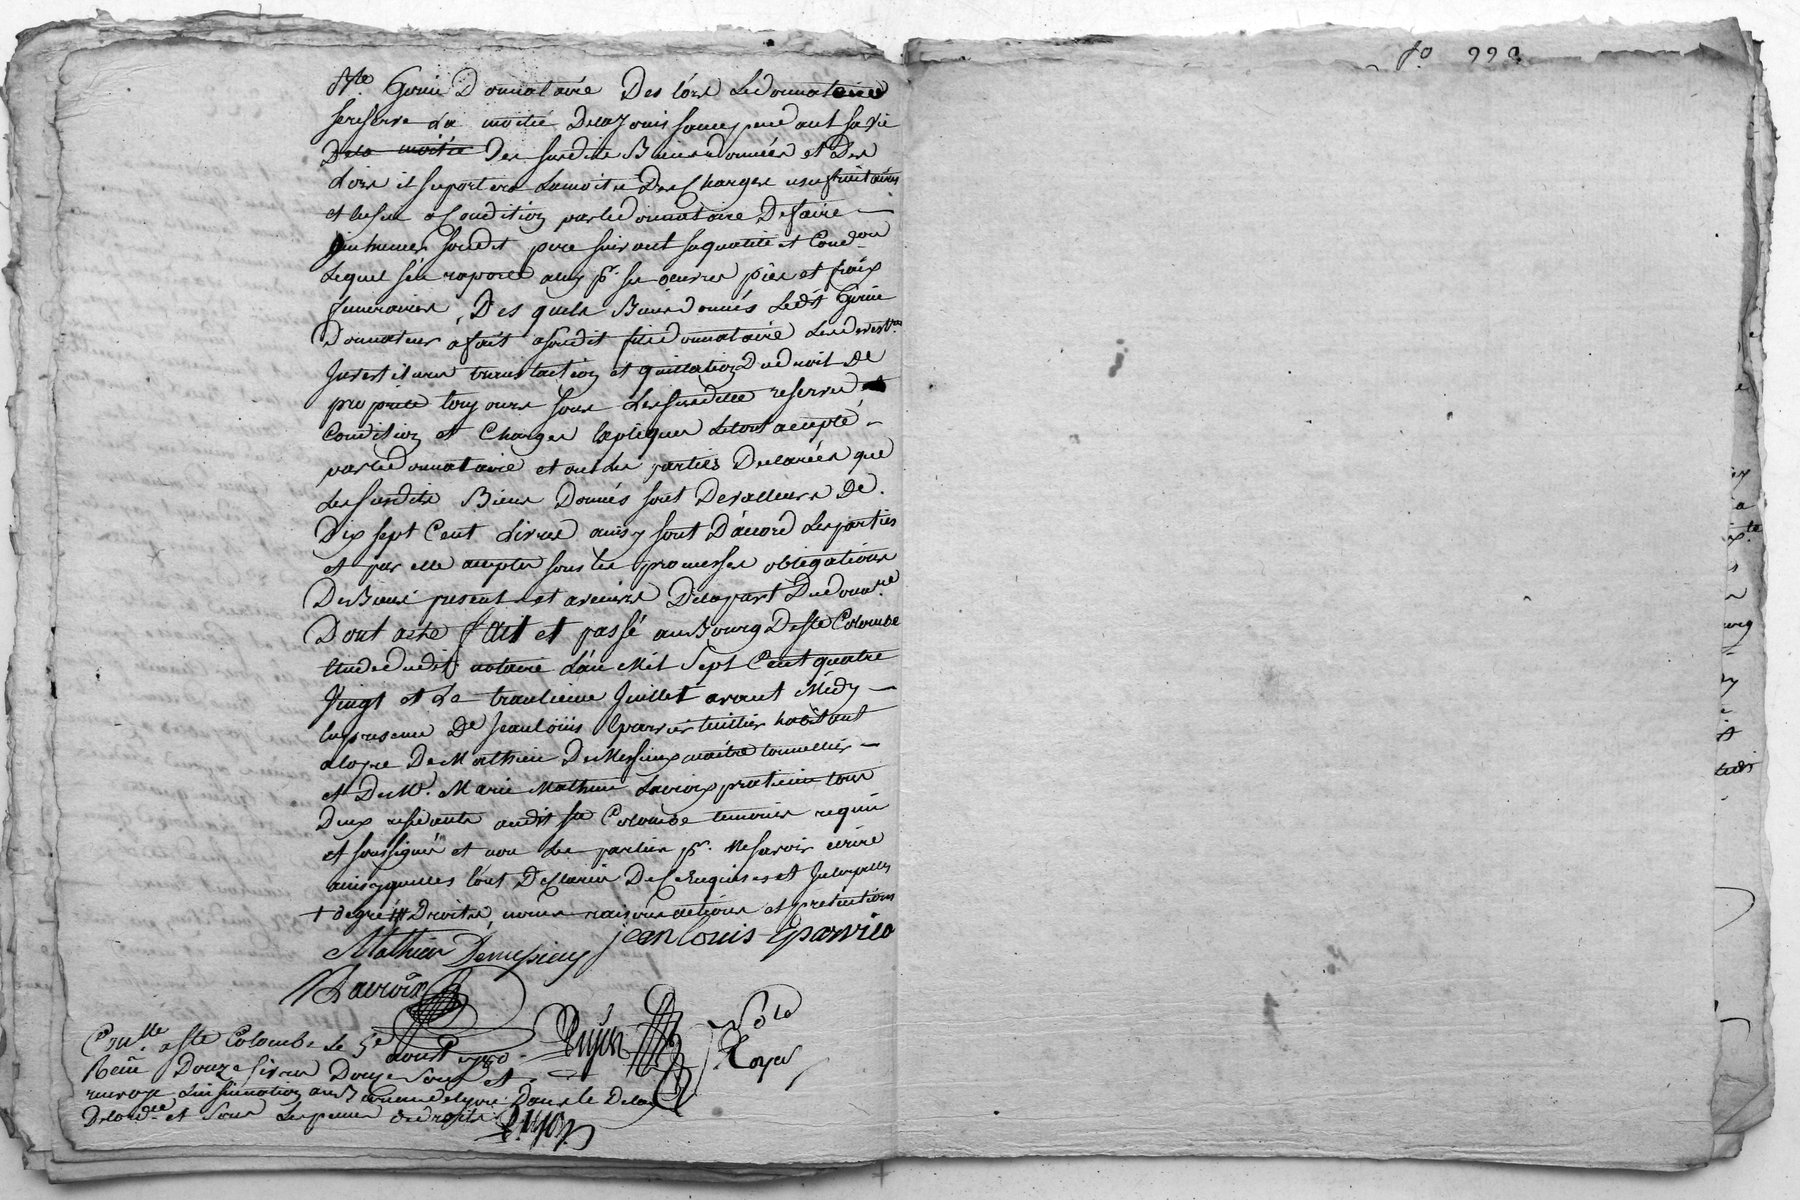 fo 99
Donnataire Des lors Le donnataire
se reserve La moitié De la Jouissance pendant sa vie
De la moitié Des susdits Biens donnés et Des
Lors il suportera La moitié Des Charges usufruitaires
et Condition par le donnataire De faire
inhumer sondit pere suivant sa quatité et Condon
Lequel s'en raporte pr. ses oeuvres pies et fraix
funeraires, Des quels Biens donnés Ledit
Donnateur a fait a sondit fils donnataire Les devest
Investitures translation et Du droit De
propriete toujours sous Les susditte reserves et
Condition et Charges Expliquées Le tout accepté
par le donnataire et ont Les parties Declarées que
Les susdits Biens Donnés sont De valleurs De
Dix sept Cent Livres ainsy sont D'acord Les parties
et par elle acceptés sous les promesses obligations
De Biens presents et avenirs De la part Du donn.re
Dont acte fait et passé au Bourg De Ste Colombe
Etude dudit notaire L'an Mil Sept Cent quatre
Vingt et Le trantieme Juillet avant Midy
En presence De Jean Loüis Eparvier tuillier habitant
De Mathieu De Messieux maitre tonnellier
et De Mr. Marie Mathieu Lacroix praticien tous
Deux residants audit Ste Colombe temoins requis
et soussignés et non Les parties pr. ne savoir écrire
ainsy quelles l'ont Declarées De Ce Enquises et Interpellés
+ degré Droits, noms raisons actions et pretentions
Mathieu Demessieux jean Louis Eparvier
Lacroix
Dujon
Not.
Royal
Con.lle a Ste Colombe Le 5e aout 1780
Reçu Douze Livres Douze sous et
renvoyé L'insinuation au Bureau De Lyon Dans le Delay
De L'ord.ce et sous Les peines de droits
Dujon